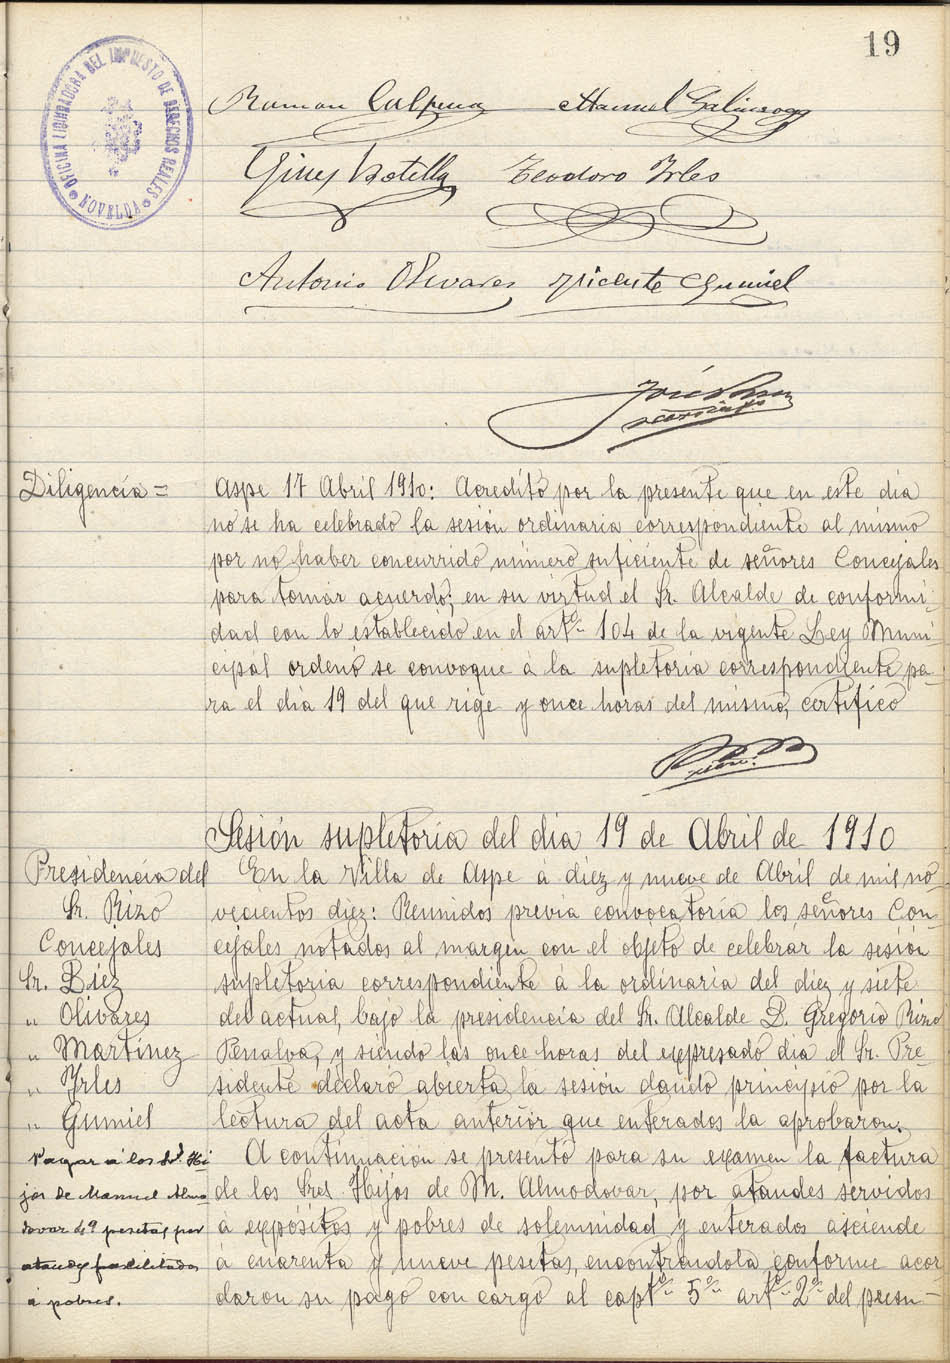 19
OFICINA LIQUIDADORA DEL IMPUESTO DE DERECHOS REALES
NOVELDA
Ramon Calpena Manuel Galinsoga
Gines Botella Teodoro Yrles
Antonio Olivares Vicente Gumiel
José
Diligencia =
Aspe 17 Abril 1910: Acredito por la presente que en este dia
no se ha celebrado la sesión ordinaria correspondiente al mismo
por no haber concurrido número suficiente de señores Concejales
para tomar acuerdo; en su virtud el Sr. Alcalde de conformi-
dad con lo establecido en el artº 104 de la vigente Ley Muni-
cipal ordenó se convoque á la supletoria correspondiente pa-
ra el dia 19 del que rige y once horas del mismo, certifico
Sesión supletoria del dia 19 de Abril de 1910
Presidencia del
Sr. Rizo
Concejales
Sr. Diez
" Olivares
" Martinez
" Yrles
" Gumiel
En la Villa de Aspe á diez y nueve de Abril de mil no-
vecientos diez: Reunidos previa convocatoria los señores Con-
cejales notados al margen con el objeto de celebrar la sesión
supletoria correspondiente á la ordinaria del diez y siete
del actual, bajo la presidencia del Sr. Alcalde D. Gregorio Rizo
Penalva, y siendo las once horas del expresado dia el Sr. Pre-
sidente declaró abierta la sesión dando principio por la
lectura del acta anterior que enterados la aprobaron.
Pagar á los Srs. Hi
jos de Manuel Almo
dovar 49 pesetas por
ataudes facilitados
á pobres.
A continuación se presentó para su examen la factura
de los Sres. Hijos de M. Almodovar, por ataudes servidos
á expósitos y pobres de solemnidad y enterados asciende
á cuarenta y nueve pesetas, encontrándola conforme acor-
daron su pago con cargo al captº 5º artº 2º del presu-